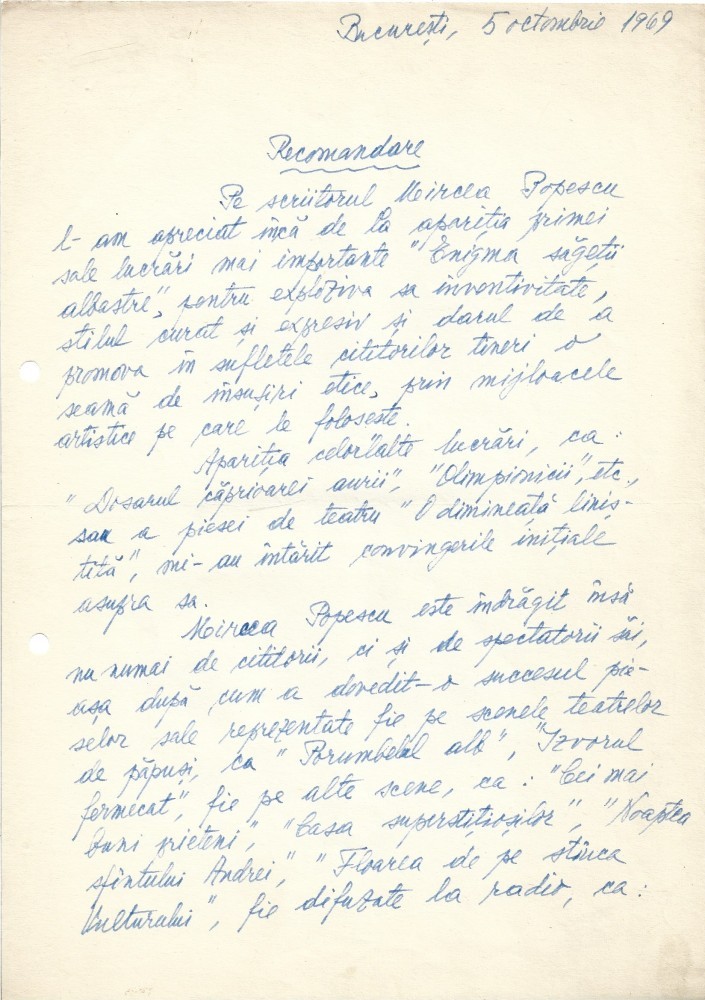 București, 5 octombrie 1969
Recomandare
Pe scriitorul Mircea Popescu
l-am apreciat încă de la apariția primei
sale lucrări mai importante "Enigma săgeții
albastre", pentru exploziva sa inventivitate,
stilul curat și expresiv și darul de a
promova în sufletele cititorilor tineri o
seamă de însușiri etice, prin mijloacele
artistice pe care le folosește.
Apariția celorlalte lucrări, ca:
"Dosarul căprioarei aurii", "Olimpionicii", etc.,
sau a piesei de teatru "O dimineață liniș-
tită", mi-au întărit convingerile inițiale
asupra sa.
Mircea Popescu este îndrăgit însă
nu numai de cititorii, ci și de spectatorii săi,
așa după cum a dovedit-o succesul pie-
selor sale reprezentate fie pe scenele teatrelor
de păpuși, ca "Porumbelul alb", "Izvorul
fermecat", fie pe alte scene, ca: "Cei mai
buni prieteni", "Casa superstițioșilor", "Noaptea
sfîntului Andrei", "Floarea de pe stînca
Vulturului", fie difuzate la radio, ca: